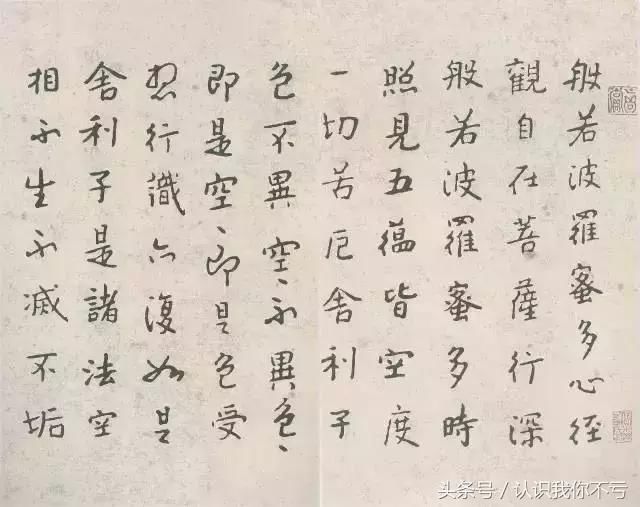 般若波羅蜜多心經
觀自在菩薩行深
般若波羅蜜多時
照見五蘊皆空度
一切苦厄舍利子
色不異空、不異色、
即是空、即是色受
想行識亦復如是
舍利子是諸法空
相不生不滅不垢
头条号/认识我你不亏